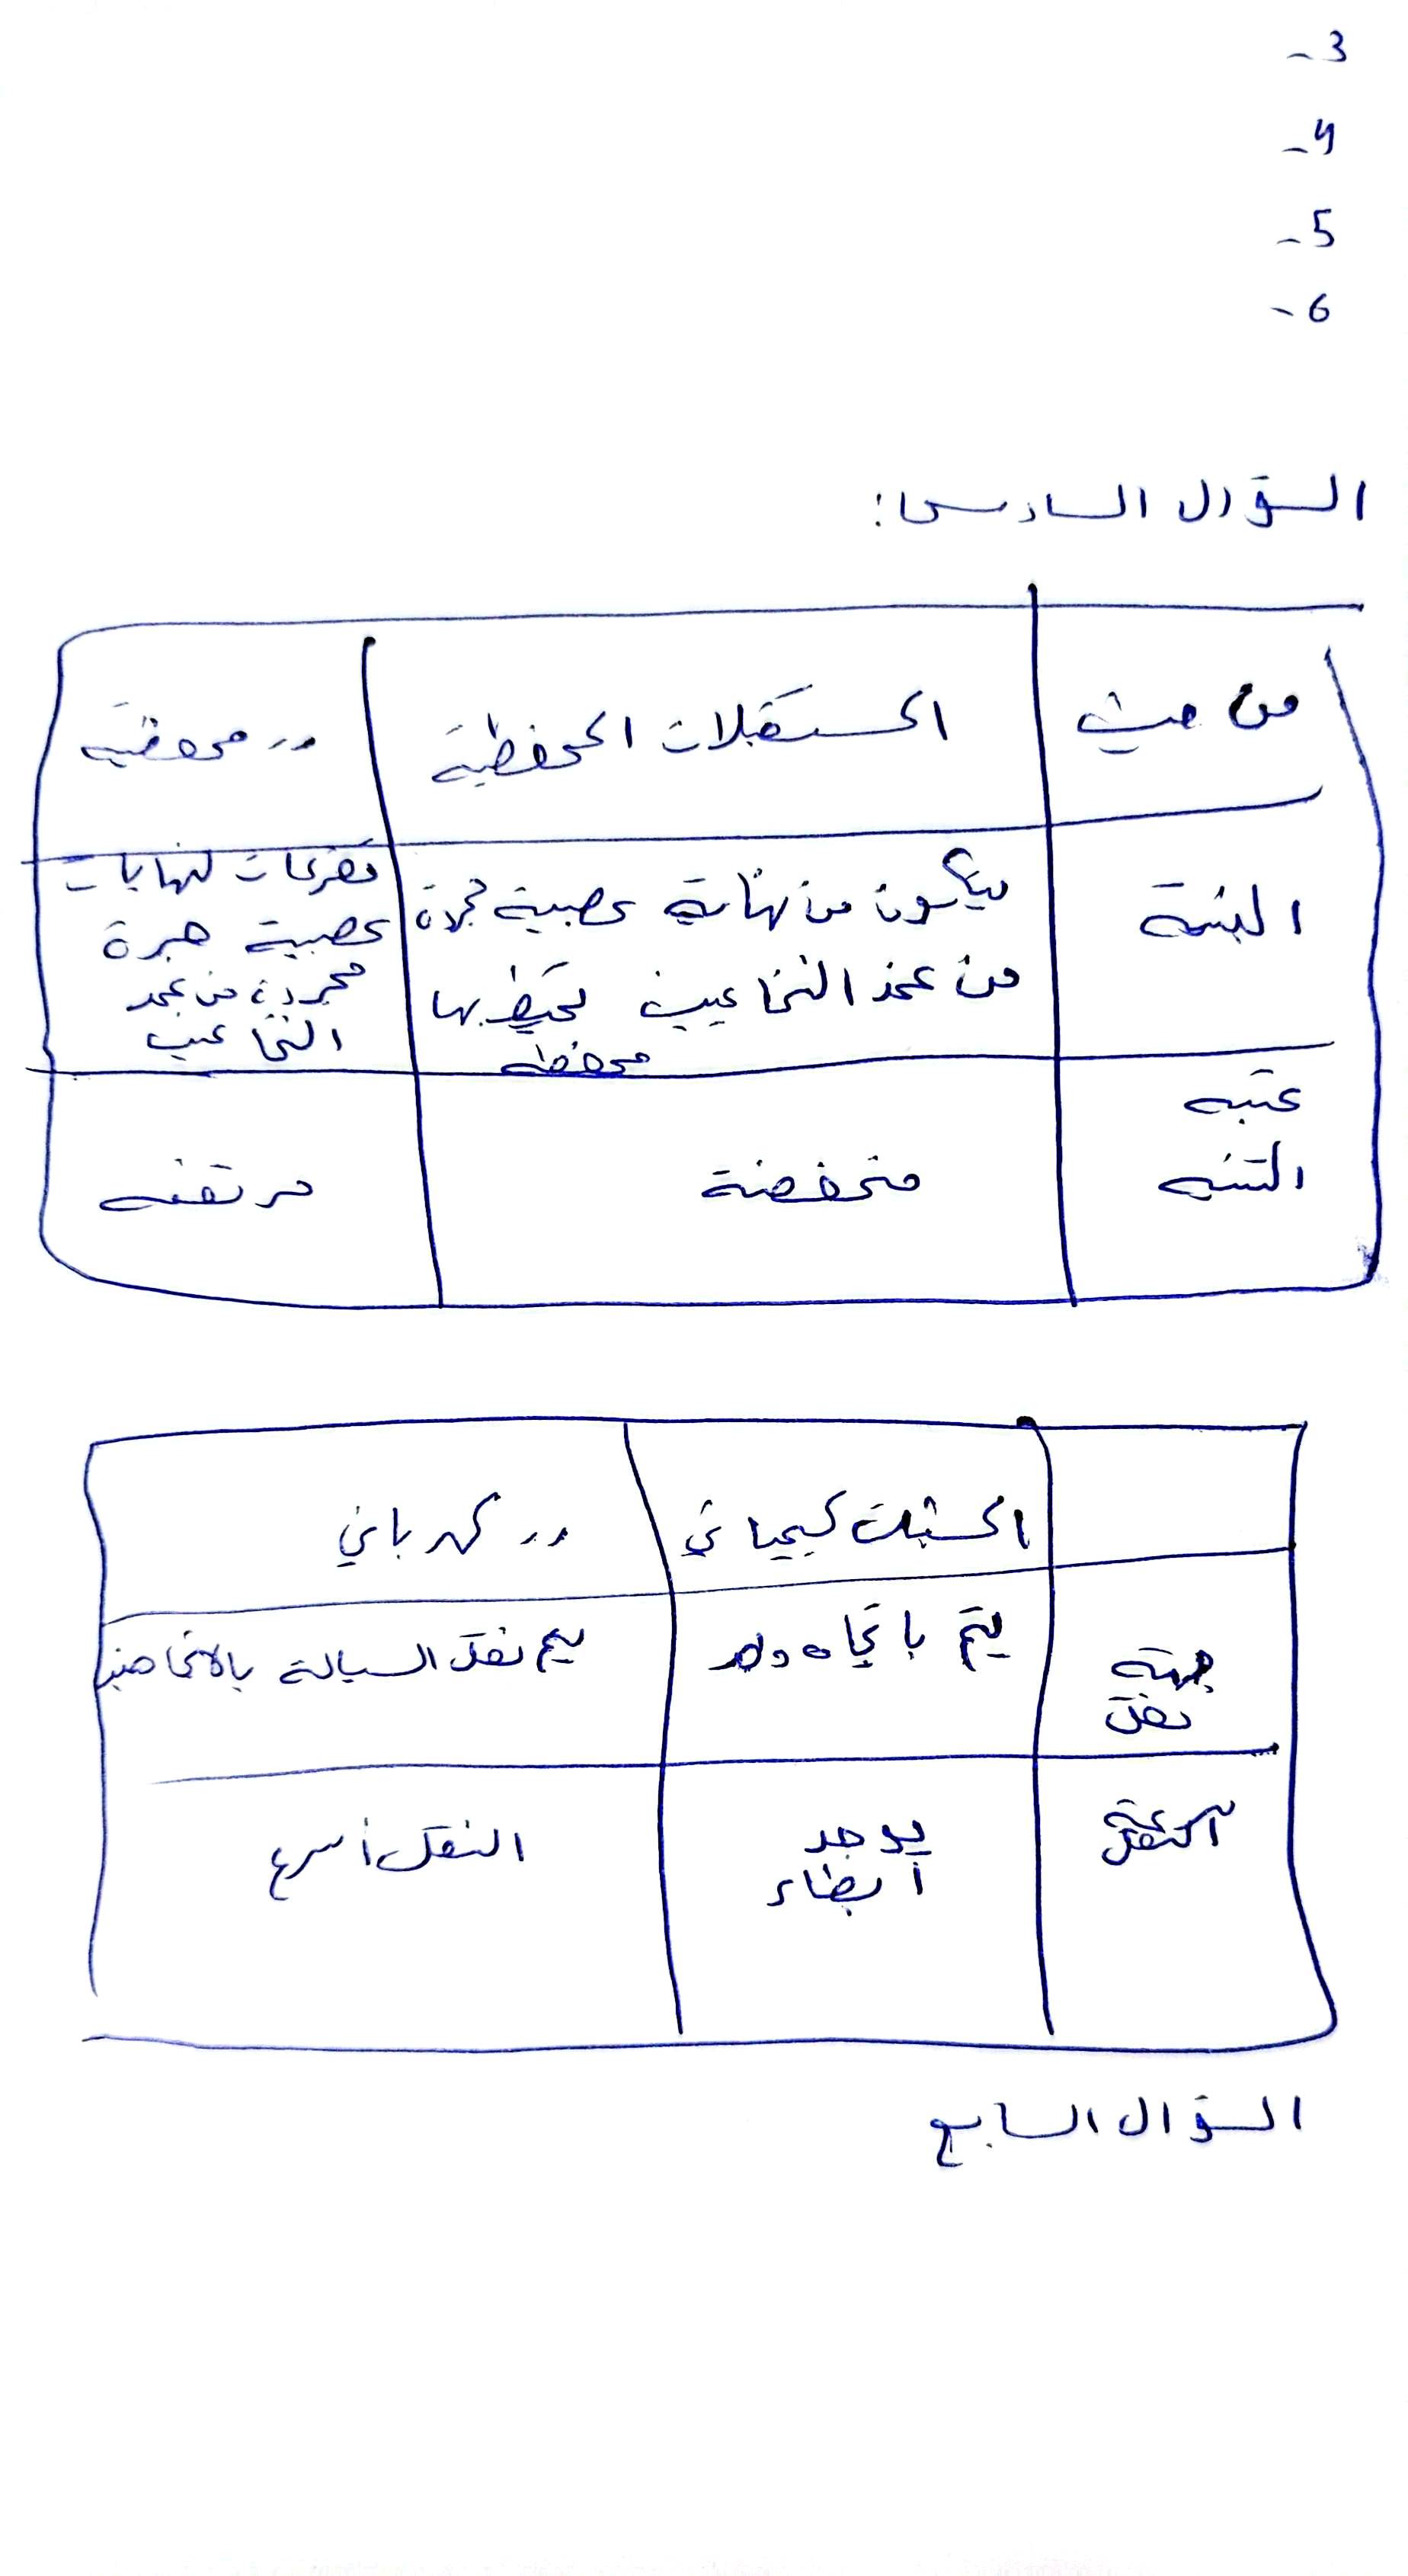 3-
4-
5-
6-
السؤال السادس:
من حيث
المستقبلات المحفظية
〃 محفظية
البنية
يتكون من نهاية عصبية مجردة
من غمد النخاعين تحيط بها
محفظة
تفرعات لنهايات
عصبية حرة
مجردة من غمد
النخاعين
عتبة
التنبيه
منخفضة
مرتفعة
المشبك كيميائي
〃 كهربائي
جهة
نقل
يتم باتجاه واحد
يتم نقل السيالة بالاتجاهين
يوجد
إبطاء
النقل أسرع
السؤال السابع